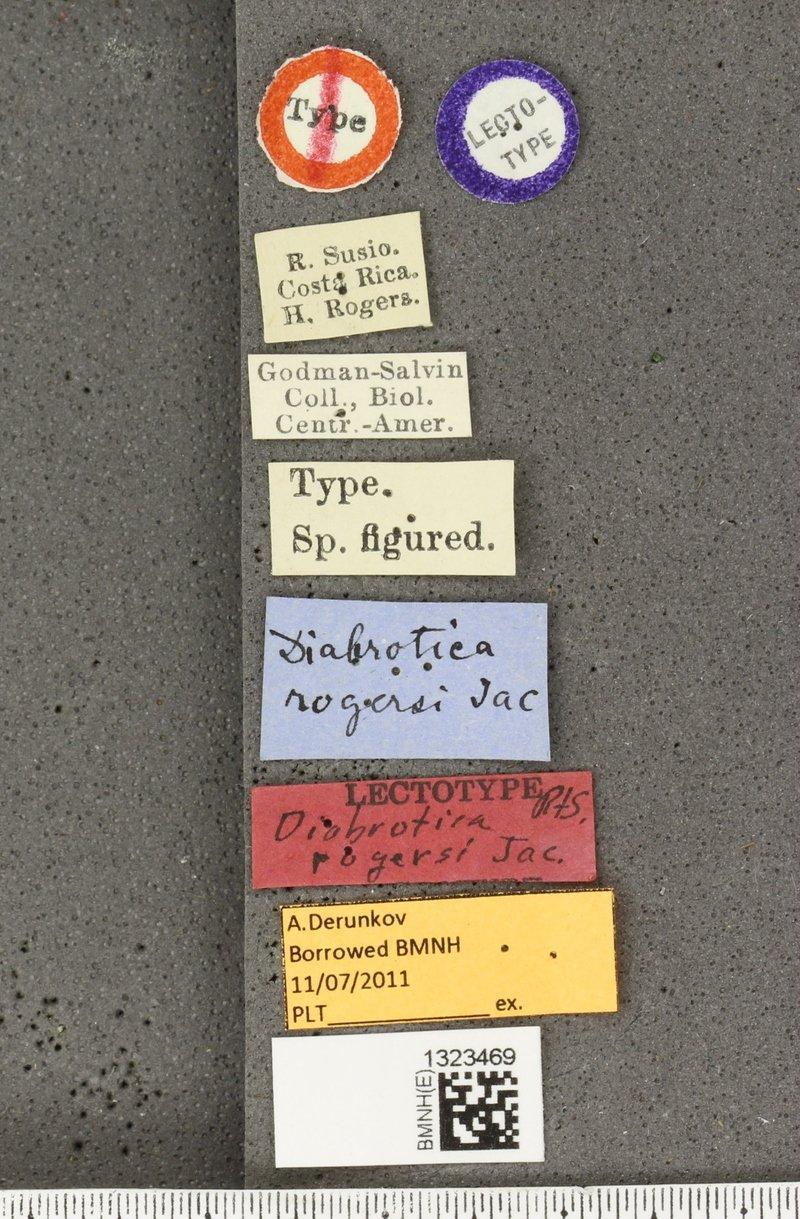 Type
LECTO-
TYPE
R. Susio.
Costa Rica.
H. Rogers.
Godman-Salvin
Coll., Biol.
Centr.-Amer.
Type.
Sp. figured.
Diabrotica
rogersi Jac
LECTOTYPE RFS.
Diabrotica
rogersi Jac.
A.Derunkov
Borrowed BMNH
11/07/2011
PLT______________ ex.
1323469
BMNH(E)